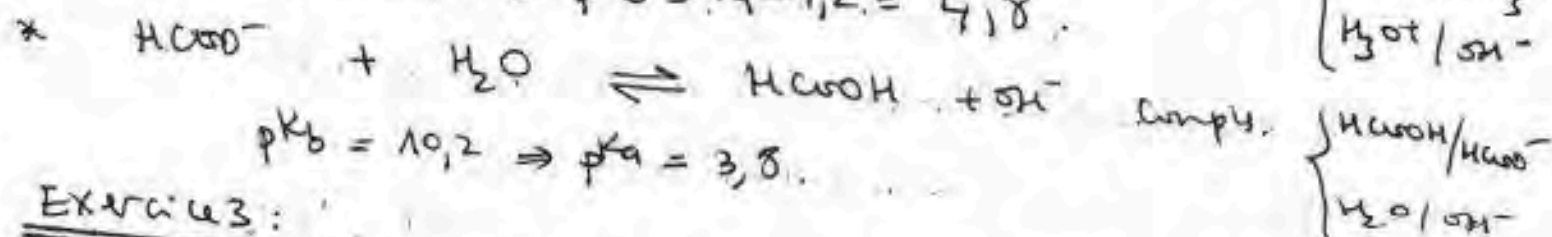 = 4,8.
H₃O⁺/OH⁻
* HCOO⁻ + H₂O ⇌ HCOOH + OH⁻ Couples. { HCOOH/HCOO⁻
pKb = 10,2 ⇒ pKa = 3,8.
H₂O/OH⁻
Exercice 3: